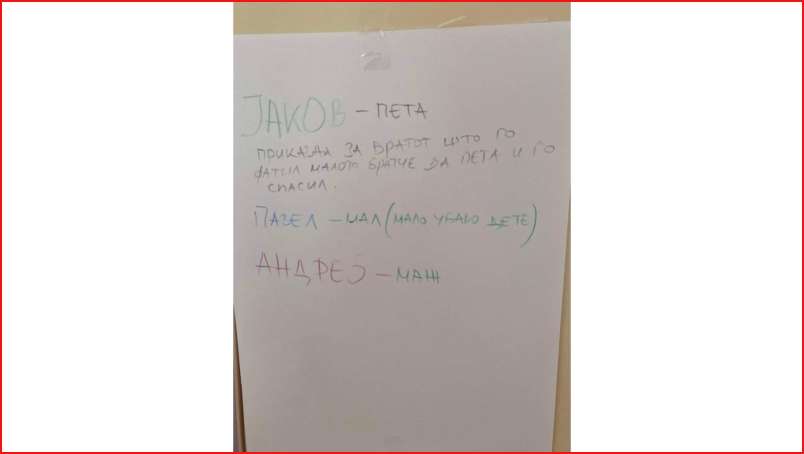 ЈАКОВ – ПЕТА
ПРИКАЗНА ЗА БРАТОТ ШТО ГО
ФАТИЛ МАЛОТО БРАТЧЕ ЗА ПЕТА И ГО
СПАСИЛ.
ПАВЕЛ – МАЛ (МАЛО УБАВО ДЕТЕ)
АНДРЕЈ – МАЖ